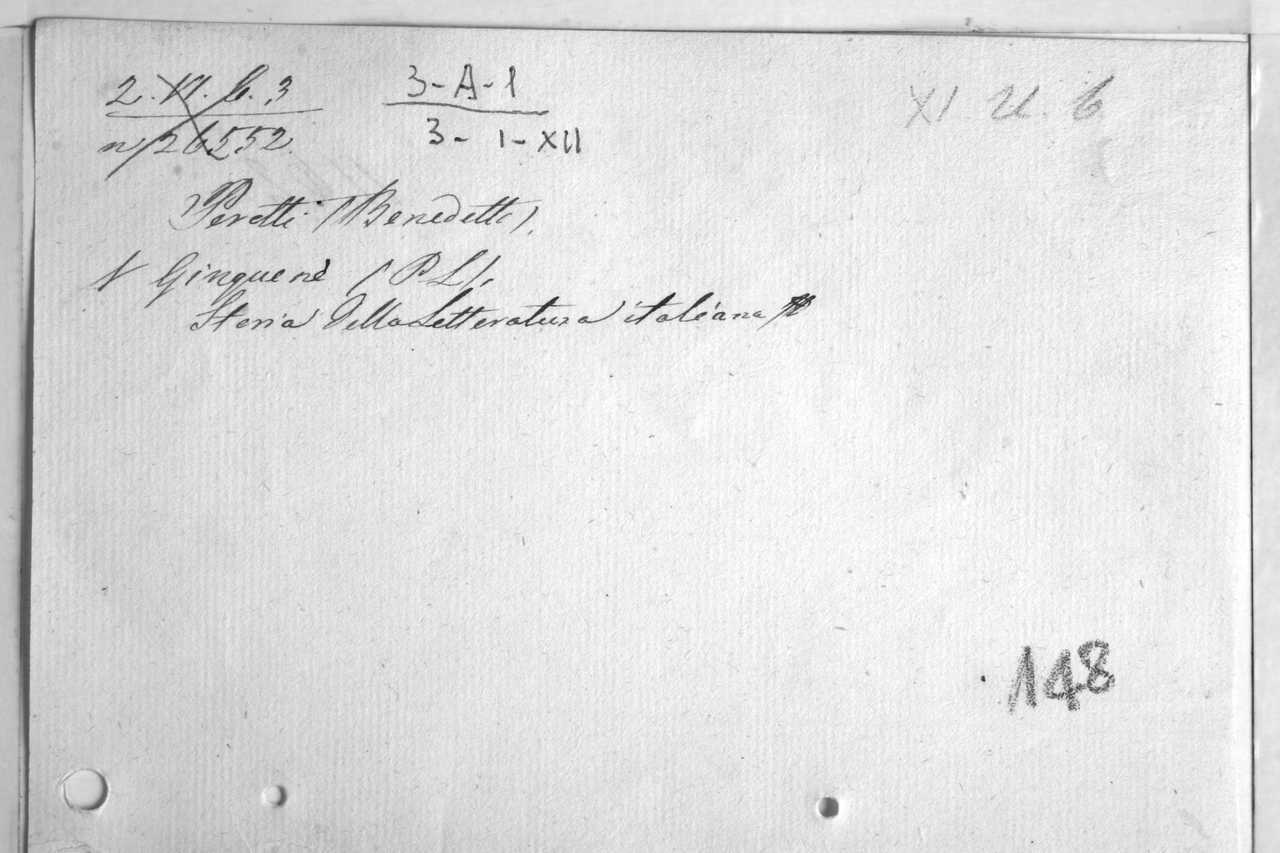 2. VI. b. 3
n/26552
3-A-1
3-1-XII
XI U. 6
Peretti (Benedetto).
V Ginguenè (P. L.).
Storia della Letteratura italiana
148